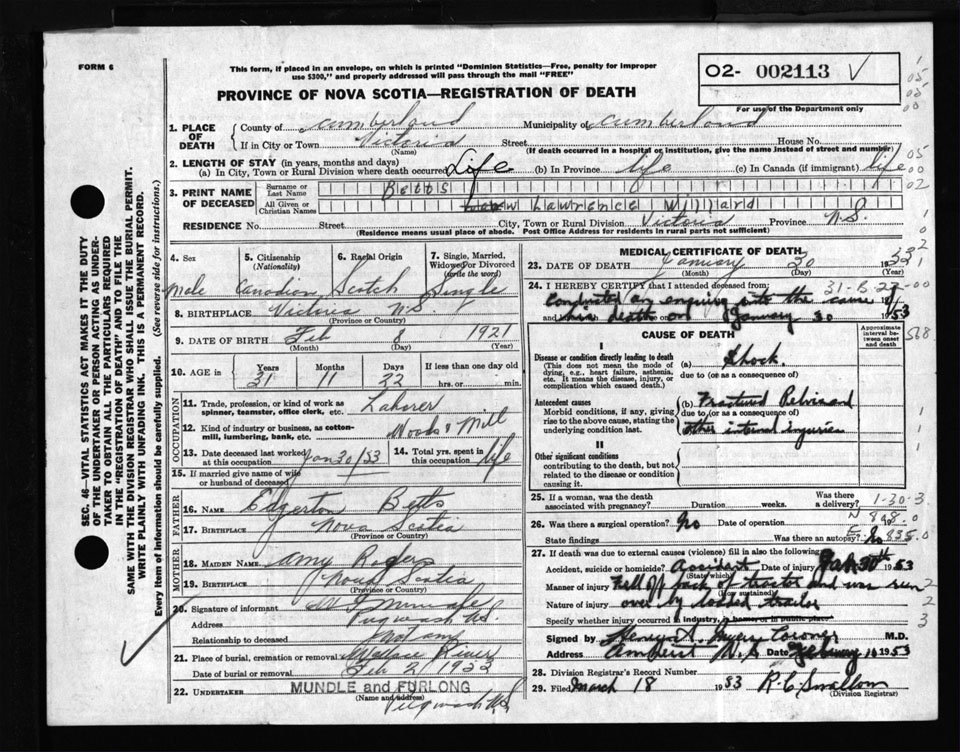 FORM 6
This form, if placed in an envelope, on which is printed "Dominion Statistics—Free, penalty for improper
use $300," and properly addressed will pass through the mail "FREE"
02- 002113 V
PROVINCE OF NOVA SCOTIA—REGISTRATION OF DEATH
For use of the Department only
1. PLACE OF DEATH
County of Cumberland Municipality of Cumberland
If in City or Town Victoria Street House No.
(Name) (If death occurred in a hospital or institution, give the name instead of street and number)
2. LENGTH OF STAY (in years, months and days)
(a) In City, Town or Rural Division where death occurred Life (b) In Province life (c) In Canada (if immigrant) life
3. PRINT NAME OF DECEASED
Surname or Last Name Betts
All Given or Christian Names Lawrence Willard
RESIDENCE No. Street City, Town or Rural Division Victoria Province N.S.
(Residence means usual place of abode. Post Office Address for residents in rural parts not sufficient)
4. Sex
Male
5. Citizenship
(Nationality)
Canadian
6. Racial Origin
Scotch
7. Single, Married,
Widowed or Divorced
(write the word)
Single
8. BIRTHPLACE Victoria N.S.
(Province or Country)
9. DATE OF BIRTH Feb 8 1921
(Month) (Day) (Year)
10. AGE in
Years Months Days If less than one day old
31 11 22 hrs. or min.
OCCUPATION
11. Trade, profession, or kind of work as
spinner, teamster, office clerk, etc. Laborer
12. Kind of industry or business, as cotton-
mill, lumbering, bank, etc. Woods & Mill
13. Date deceased last worked
at this occupation Jan 30/53
14. Total yrs. spent in
this occupation life
15. If married give name of wife
or husband of deceased
FATHER
16. NAME Edgerton Betts
17. BIRTHPLACE Nova Scotia
(Province or Country)
MOTHER
18. MAIDEN NAME Amy
19. BIRTHPLACE Nova Scotia
(Province or Country)
20. Signature of informant
Address Pugwash N.S.
Relationship to deceased Not any
21. Place of burial, cremation or removal Wallace River
Date of burial or removal Feb 2, 1953
22. UNDERTAKER MUNDLE and FURLONG
(Name and address)
Pugwash N.S.
MEDICAL CERTIFICATE OF DEATH
23. DATE OF DEATH January 30 1953
(Month) (Day)
24. I HEREBY CERTIFY that I attended deceased from:
conducted an enquiry into the cause of
his death on January 30 1953
CAUSE OF DEATH
Approximate
interval between
onset and
death
I
Disease or condition directly leading to death
(This does not mean the mode of
dying, e.g., heart failure, asthenia,
etc. It means the disease, injury, or
complication which caused death.)
(a) Shock
due to (or as a consequence of)
Antecedent causes
Morbid conditions, if any, giving
rise to the above cause, stating the
underlying condition last.
(b) Fractured Pelvis and
due to (or as a consequence of)
other internal injuries
II
Other significant conditions
contributing to the death, but not
related to the disease or condition
causing it.
25. If a woman, was the death
associated with pregnancy? Duration weeks. Was there
a delivery?
26. Was there a surgical operation? No Date of operation
State findings Was there an autopsy? No
27. If death was due to external causes (violence) fill in also the following:
Accident, suicide or homicide? Accident Date of injury Jan 30th 1953
(State which)
Manner of injury Fell off back of tractor and was run
(How sustained)
Nature of injury over by loaded trailor
Specify whether injury occurred in industry, in home, or in public place
Signed by Coroner M.D.
Address Amherst N.S. Date February 1953
28. Division Registrar's Record Number
29. Filed March 18 1953 R. C. Smallow
(Division Registrar)
SEC. 46—VITAL STATISTICS ACT MAKES IT THE DUTY
OF THE UNDERTAKER OR PERSON ACTING AS UNDER-
TAKER TO OBTAIN ALL THE PARTICULARS REQUIRED
IN THE "REGISTRATION OF DEATH" AND TO FILE THE
SAME WITH THE DIVISION REGISTRAR WHO SHALL ISSUE THE BURIAL PERMIT.
WRITE PLAINLY WITH UNFADING INK. THIS IS A PERMANENT RECORD.
Every item of information should be carefully supplied. (See reverse side for instructions.)